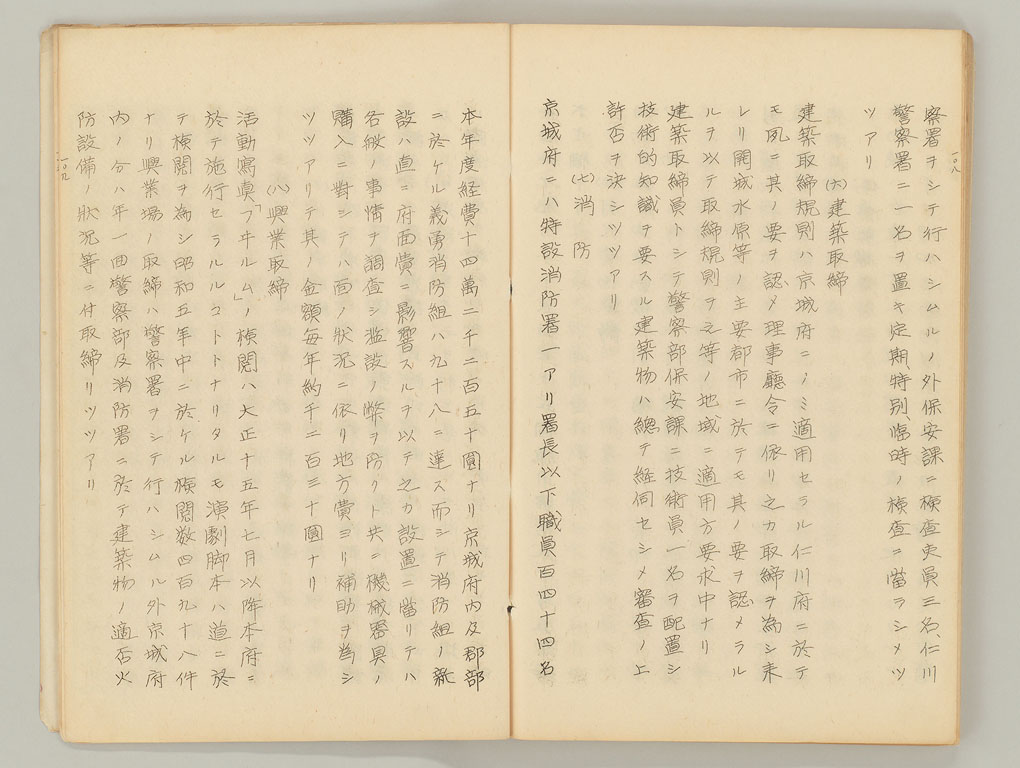 一〇八
察署ヲシテ行ハシムルノ外保安課ニ検査吏員三名、仁川
警察署ニ一名ヲ置キ定期特別臨時ノ検査ニ當ラシメツ
ツアリ
(六)建築取締
建築取締規則ハ京城府ニノミ適用セラル仁川府ニ於テ
モ夙ニ其ノ要ヲ認メ理事廳令ニ依リ之カ取締ヲ為シ来
レリ開城水原等ノ主要都市ニ於テモ其ノ要ヲ認メラル
ルヲ以テ取締規則ヲ之等ノ地域ニ適用方要求中ナリ
建築取締員トシテ警察部保安課ニ技術員一名ヲ配置シ
技術的知識ヲ要スル建築物ハ總テ経伺セシメ審査ノ上
許否ヲ決シツツアリ
(七)消防
京城府ニハ特設消防署一アリ署長以下職員百四十四名
本年度経費十四萬二千二百五十圓ナリ京城府内及郡部
ニ於ケル義勇消防組ハ九十八ニ達ス而シテ消防組ノ新
設ハ直ニ府面費ニ影響スルヲ以テ之カ設置ニ當リテハ
各般ノ事情ヲ調査シ濫設ノ幣ヲ防クト共ニ機械器具ノ
購入ニ對シテハ面ノ状況ニ依リ地方費ヨリ補助ヲ為シ
ツツアリテ其ノ金額毎年約千二百三十圓ナリ
(八)興業取締
活動寫真「フヰルム」ノ検閲ハ大正十五年七月以降本府ニ
於テ施行セラルルコトトナリタルモ演劇脚本ハ道ニ於
テ検閲ヲ為シ昭和五年中ニ於ケル検閲数四百九十八件
ナリ興業場ノ取締ハ警察署ヲシテ行ハシムル外京城府
内ノ分ハ年一回警察部及消防署ニ於テ建築物ノ適否火
防設備ノ状況等ニ付取締リツツアリ
一〇九